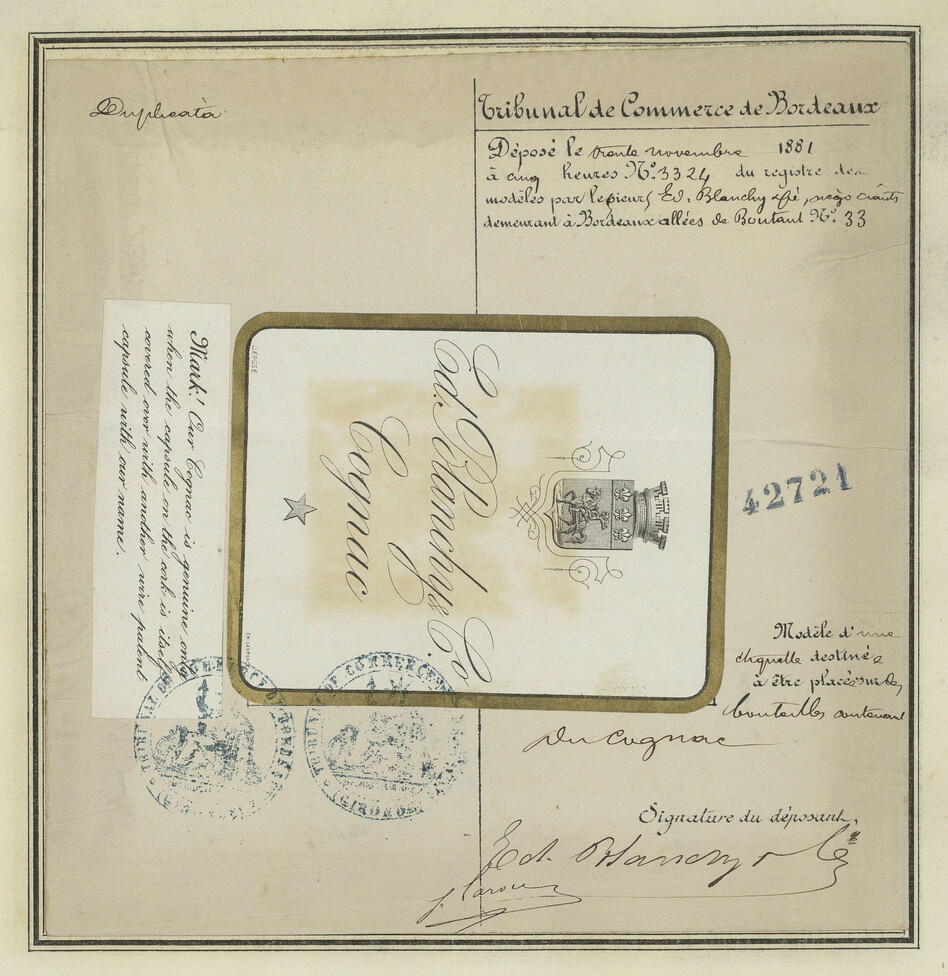 Duplicata
Tribunal de Commerce de Bordeaux
Déposé le trente novembre 1881
à cinq heures N° 3324 du registre des
modèles par les sieurs Ed. Blanchy & Cie, négociants
demeurant à Bordeaux allées de Boutaut N° 33
Mark! Our Cognac is genuine only
when the capsule on the cork is itself
covered over with another wire patent
capsule with our name.
DÉPOSÉ
Ed. Blanchy & Co
Cognac
42721
Modèle d'une
étiquette destinée
à être placée sur des
bouteilles contenant
du Cognac
TRIBUNAL OF COMMERCE
(GIRONDE)
TRIBUNAL OF COMMERCE
(GIRONDE)
Signature du déposant,
Ed. Blanchy & Cie